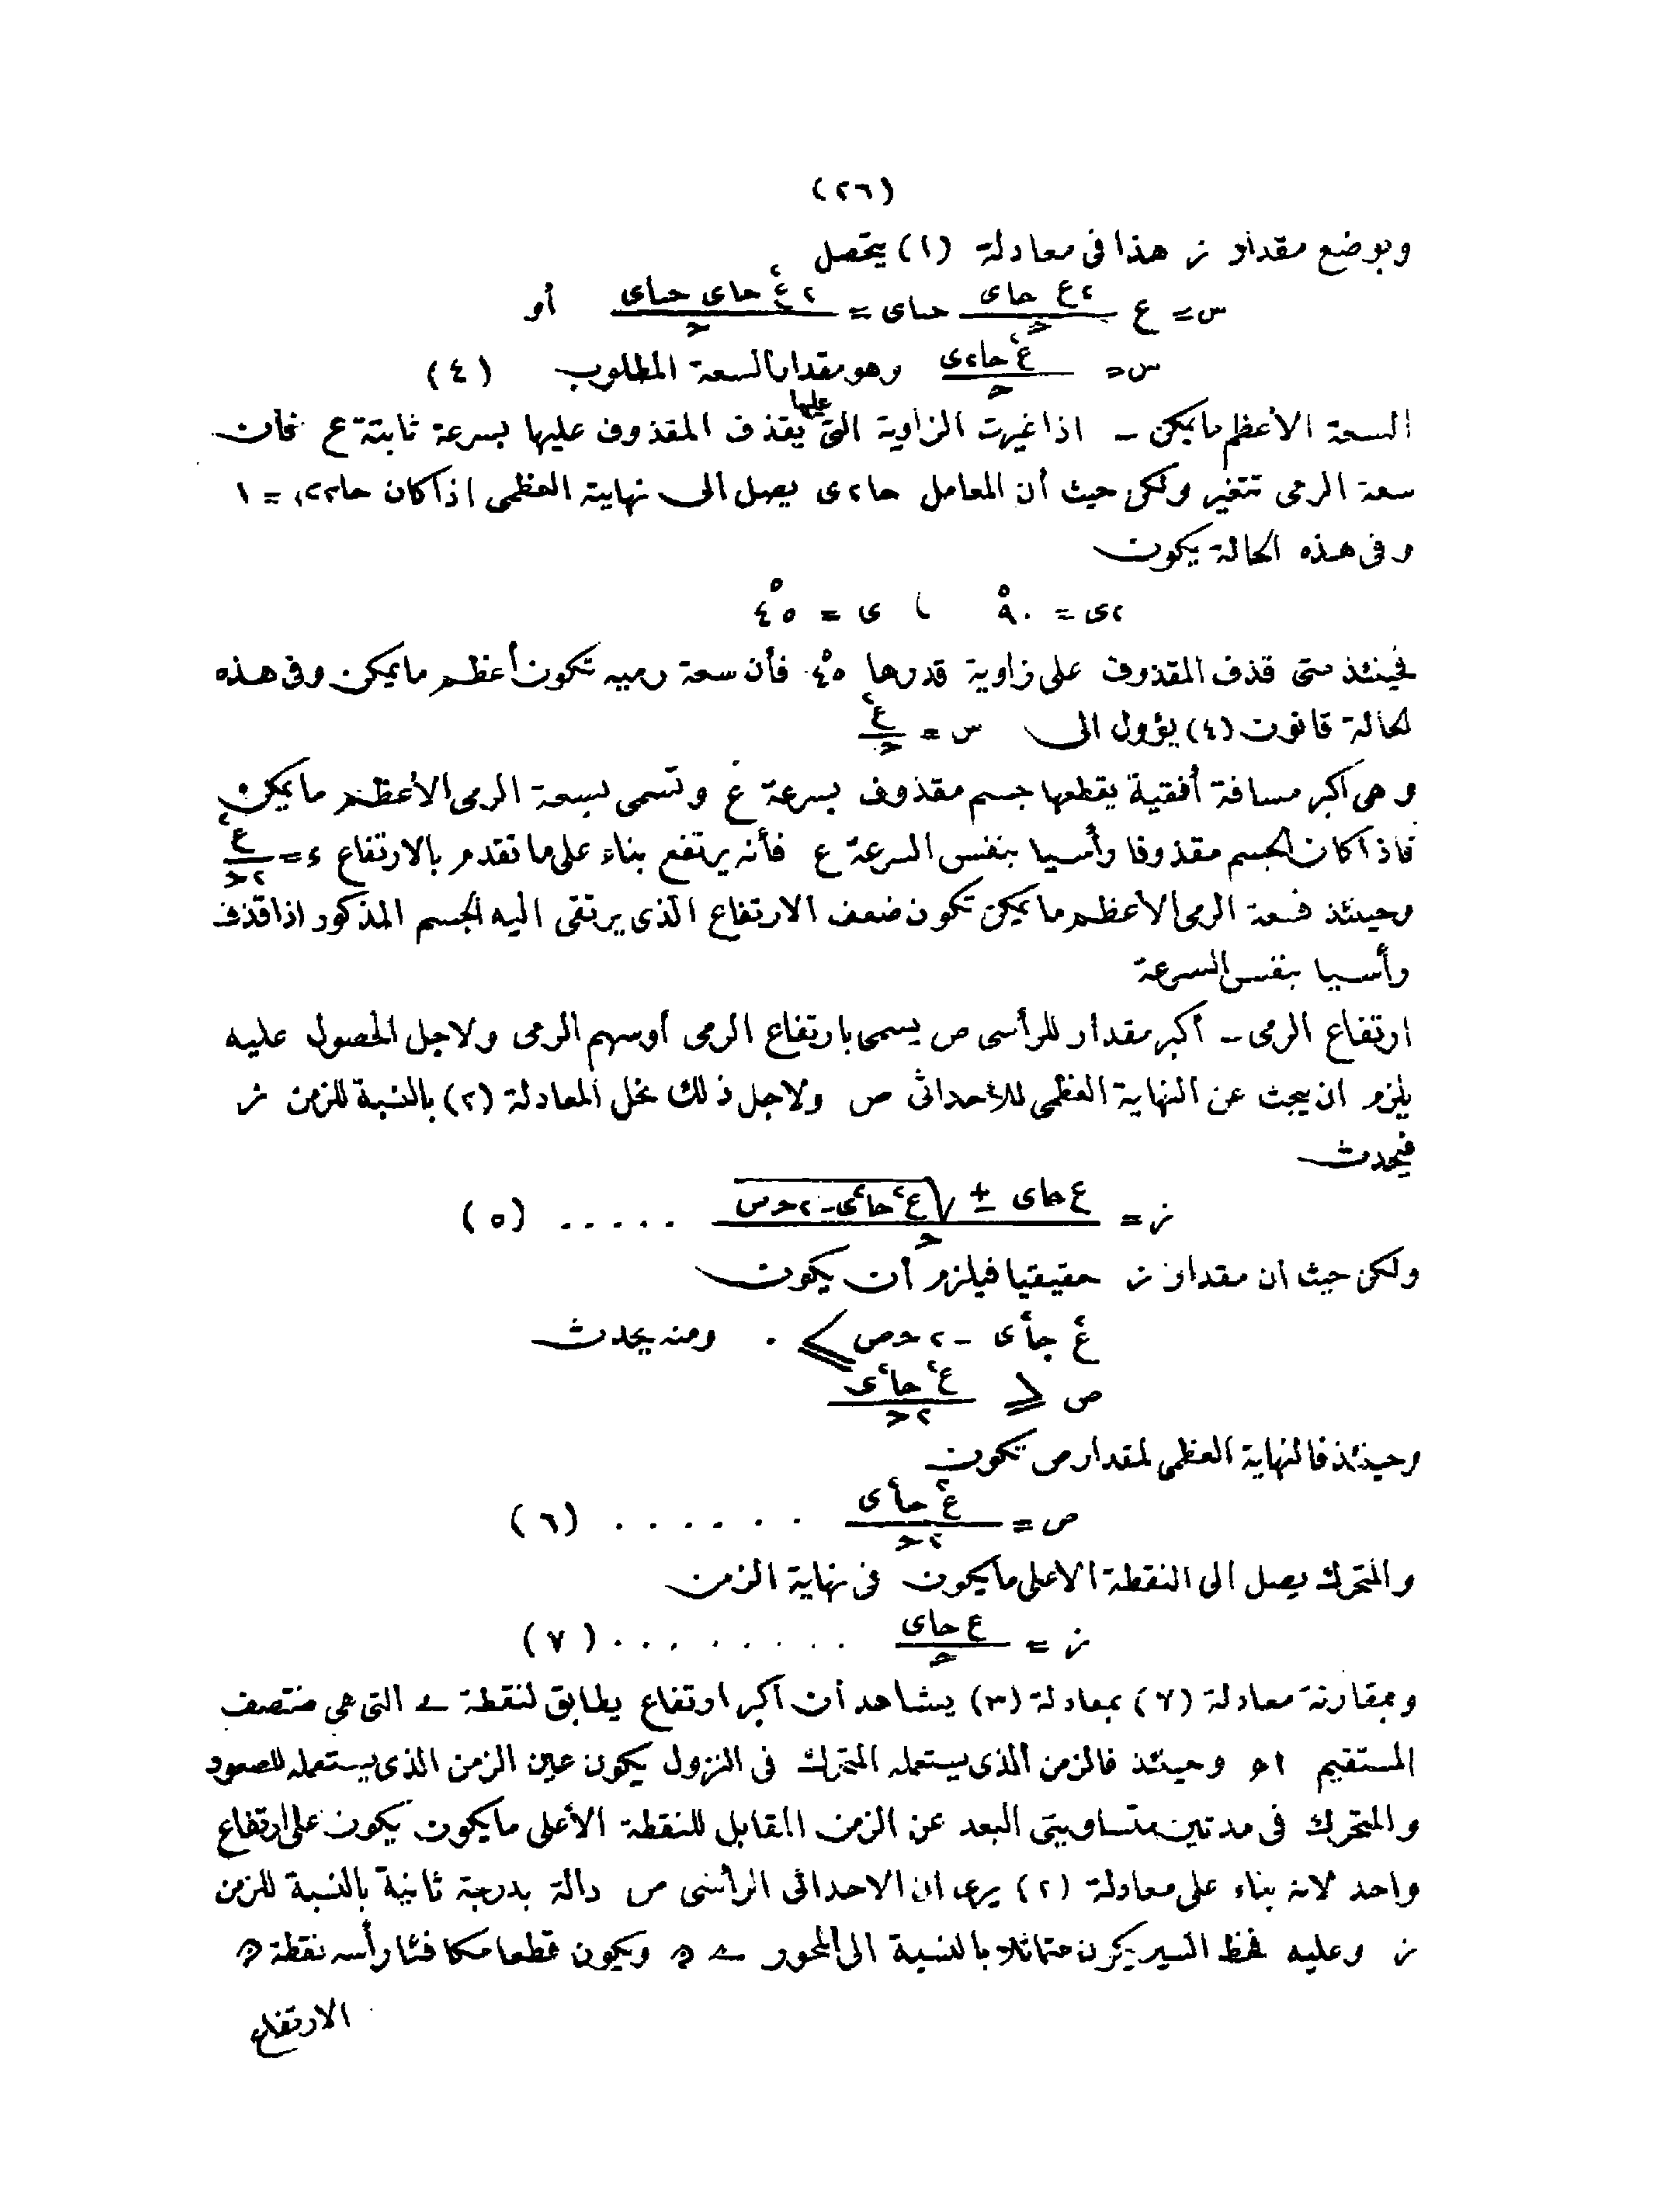 (٢٦)
وبوضع مقدار ز هذا فى معادلة (١) يتحصل
س = ع ٢ع حاى / حـ حتاى = ٢ع٢ حاى حتاى / حـ أو
س = ع٢ حا٢ى / حـ وهو مقدار السعة المطلوب (٤)
السعة الأعظم ما يمكن ــ اذا غيرت الزاوية التى يقذف عليها المقذوف عليها بسرعة ثابتة ع فان
سعة الرمى تتغير ولكن حيث أن المعامل حا٢ى يصل الى نهايية العظمى اذا كان حا٢ى = ١
وفى هذه الحالة يكون
٢ى = ٩٠° ، ى = ٤٥°
فحينئذ متى قذف المقذوف على زاوية قدرها ٤٥° فأن سعة رميه تكون أعظم ما يمكن وفى هذه
لحالة قانون (٤) يؤول الى س = ع٢ / حـ
وهى أكبر مسافة أفقية يقطعها جسم مقذوف بسرعة ع وتسمى بسعة الرمى الأعظم ما يمكن
فاذا كان الجسم مقذوفا رأسيا بنفس السرعة ع فأنه يرتفع بناء على ما تقدم بالارتفاع ء = ع٢ / ٢حـ
وحينئذ فسعة الرمى الأعظم ما يمكن تكون ضعف الارتفاع الذى يرتقى اليه الجسم المذكور اذا قذف
رأسيا بنفس السرعة
ارتفاع الرمى ــ أكبر مقدار للرأسى ص يسمى بارتفاع الرمى أوسهم الرمى ولاجل الحصول عليه
يلزم ان يبحث عن النهاية العظمى للأحداثى ص ولاجل ذلك نحل المعادلة (٢) بالنسبة للزمن ز
فيحدث
ز = ع حاى ± √ع٢ حا٢ى - ٢حـ ص / حـ ..... (٥)
ولكن حيث ان مقدار ز حقيقيا فيلزم أن يكون
ع٢ جا٢ى - ٢حـ ص ≥ ٠ ومنه يحدث
ص ≤ ع٢ حا٢ى / ٢حـ
وحينئذ فالنهاية العظمى لمقدار ص تكون
ص = ع٢ حا٢ى / ٢حـ ...... (٦)
والمتحرك يصل الى النقطة الاعلى ما يكون فى نهاية الزمن
ز = ع حاى / حـ ......... (٧)
وبمقارنة معادلة (٧) بمعادلة (٣) يشاهد أن أكبر ارتفاع يطابق لنقطة التى هى منتصف
المستقيم وحينئذ فالزمن الذى يستعمله المتحرك فى النزول يكون عين الزمن الذى يستعمله للصعود
والمتحرك فى مدتين متساويتى البعد عن الزمن المقابل للنقطة الأعلى ما يكون يكون على ارتفاع
واحد لانه بناء على معادلة (٢) يرى ان الاحداثى الرأسى ص دالة بدرجة ثانية بالنسبة للزمن
ز وعليه فخط السير يكون متماثلا بالنسبة الى المحور ويكون قطعا مكافئا رأسه نقطة
الارتفاع